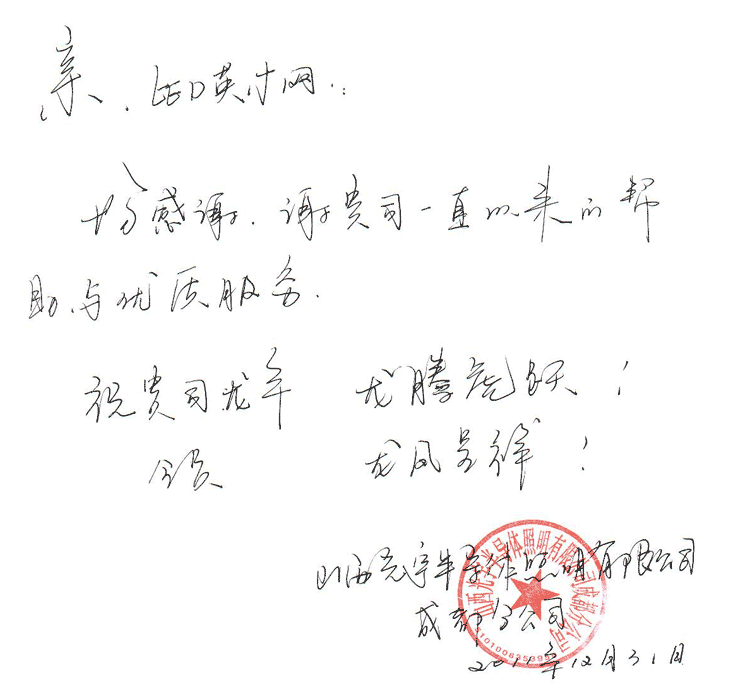 亲、LED英才网:
十分感谢.谢贵司一直以来的帮
助与优质服务.
祝贵司龙年 龙腾虎跃!
全员 龙凤呈祥!
山西光宇半导体照明有限公司
成都分公司
2011年12月31日
山西光宇半导体照明有限公司成都分公司